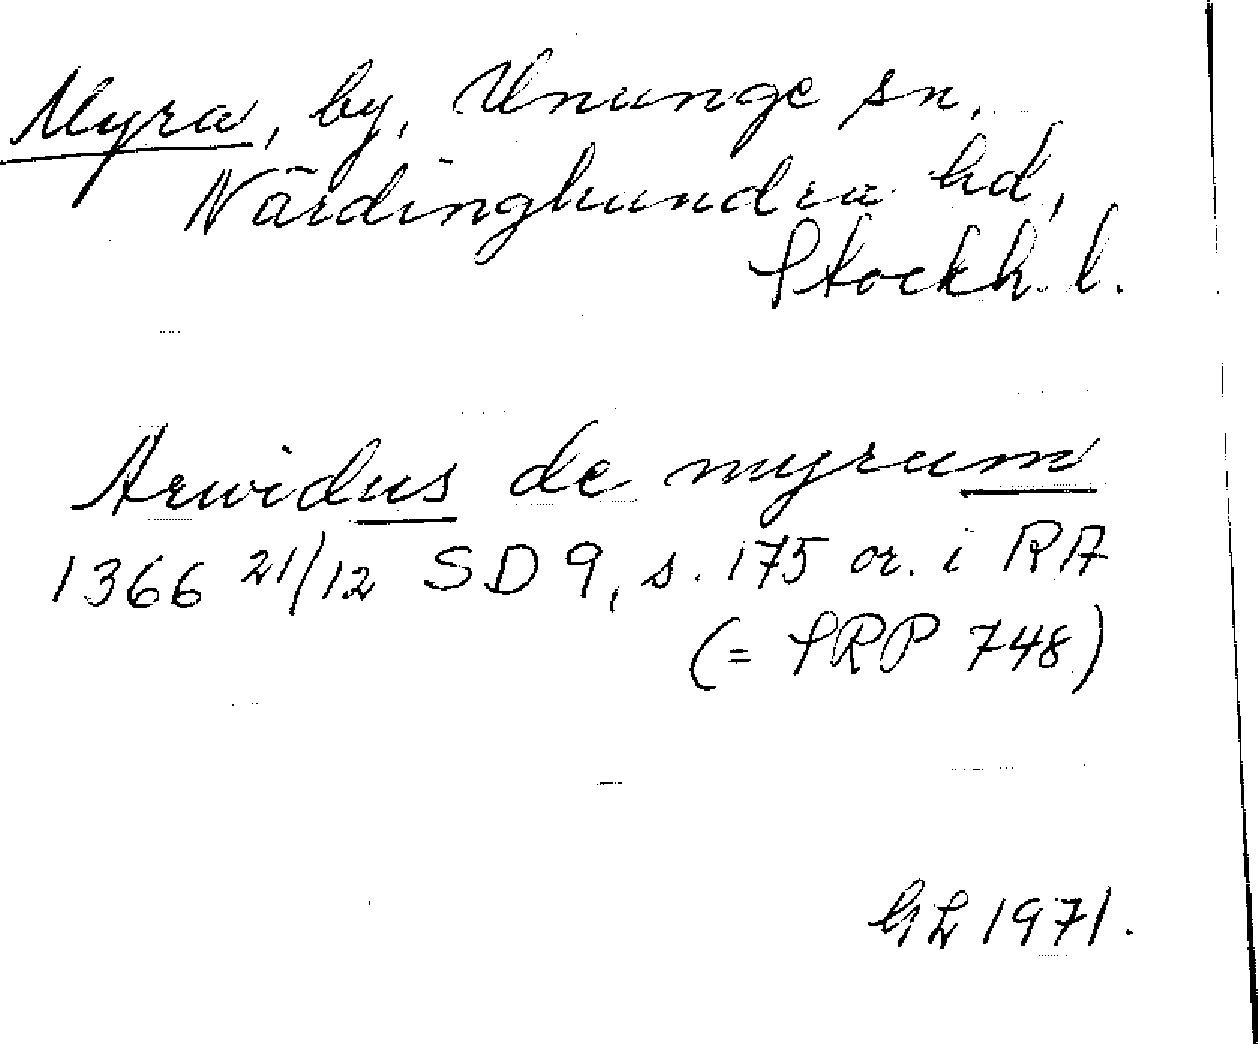 Myra, by, Ununge sn,
Närdinghundra hd,
Stockh. l.
Arwidus de myrum
1366 21/12 SD 9, s. 175 or. i RA
(= SRP 748)
GL 1971.